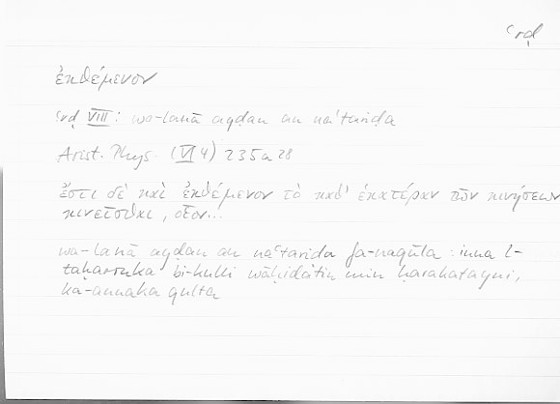 ʿrḍ
ἐκθέμενον
ʿrḍ VIII: wa-lanā ayḍan an naʿtariḍa
Arist. Phys. (VI 4) 235a28
ἔστι δὲ καὶ ἐκθέμενον τὸ καθ' ἑκατέραν τῶν κινήσεων
κινεῖσθαι, οἷον...
wa-lanā ayḍan an naʿtariḍa fa-naqūla: inna l-
taḥarruka bi-kulli wāḥidatin min ḥarakatayni,
ka-annaka qulta